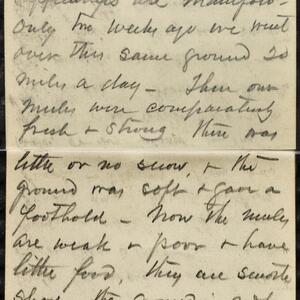 are manifold -
Only two weeks ago we went
over this same ground 20
miles a day - Then our
mules were comparatively
fresh & strong. there was
little or no snow, & the
ground was soft & gave a
foothold - Now the mules
are weak & poor & have
little food, they are smooth
the ground is